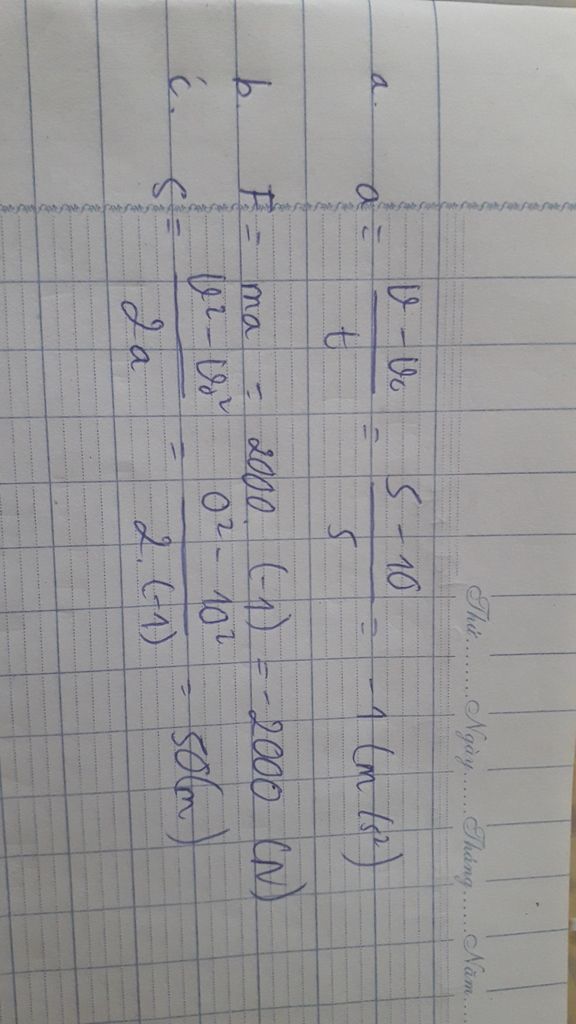 Thứ........Ngày......Tháng......Năm....
a. a = \frac{v - v_0}{t} = \frac{5 - 10}{5} = -1 (m/s²)
b. F = ma = 2000. (-1) = -2000 (N)
c. S = \frac{v² - v_0²}{2a} = \frac{0² - 10²}{2. (-1)} = 50(m)